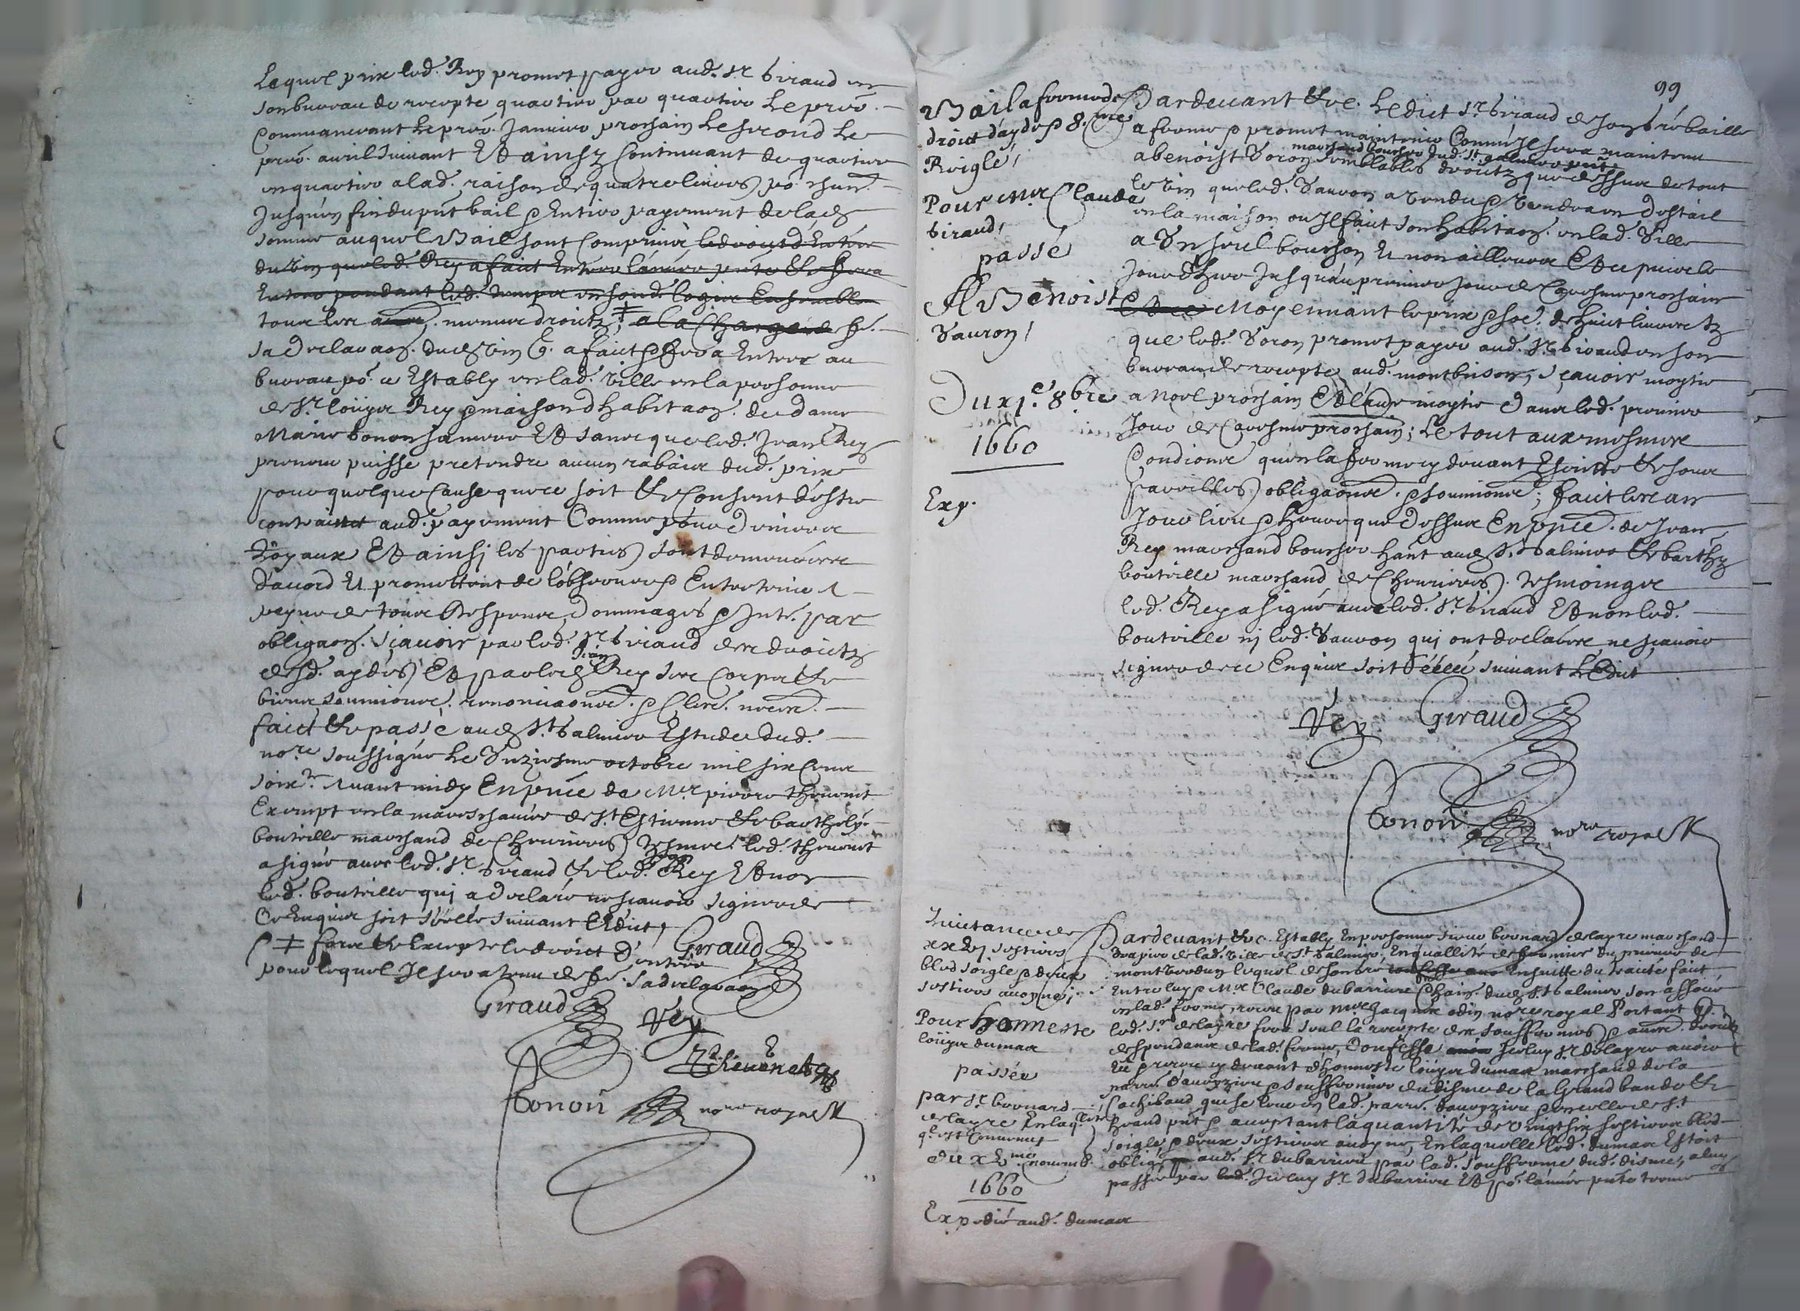 Lequel prix led. Rey promet payer aud. Sr Giraud en
son bureau de recepte quartier par quartier le pre͞r
Commancant le pre͞r Janvier prochain le second le
pre͞r avril suivant Et ainsy Continuant de quartier
en quartier a lad. raison de quatre livres po.
Jusques fin du pnt bail & Entier payement de lad.
somme auquel Bail sont Comprins les droictz d'Entrée
du vin que led. Rey a faict Entrer l'année pnte & fera
Entrer pendant led. temps en son d. logis Ensemble
tous les au͞es menus droictz ‡ a la Charge de f.
sa declaraon. dud. vin q. a faict & fera Entrer au
bureau po. ce Estably en lad. ville en la personne
de Sr louys Rey & maison d'habitaon. de dame
Marie bonon sa mere Et sans que led. Jean Rey
preneur puisse pretendre aucun rabais dud. prix
pour quelque Cause que ce soit & Consent d'estre
contrainct aud. payement Comme pour deniers
Royaux Et ainsi les parties sont demeurées
d'accord Et promettent de l'observer & Entretenir A
peyne de tous despens, dommages & Int. par
obligaon. sçavoir par led. Sr Giraud des droictz
desd. aydes Et par led. Jean Rey ses Corps &
biens, soumions. renonciaons. & Clers. neces.
faict & passé aud. St Galmier Estude dud.
nore soussigné Le Unziesme octobre mil six Cens
soix.te Avant midy En pnce de Mre pierre thevenet
Exempt en la mareschaucée de St Estienne & barthely.
bouteille marchand de Chevrieres tesmoins led. thevenet
a signé avec led. Sr Giraud & led. Jean Rey Et non
led. bouteille qui a declaré ne sçavoir signer de
Ce Enquis soit scellé suivant l'Edict
‡ fors & Excepte le droict d'entrée
pour lequel Il sera tenu de f. sa declaraon
Giraud
Giraud
Rey
Thevenet
Bonon
nore royal
99
Bail a ferme de
droict d'aydes & 8.me
Reiglé
Pour Mre Claude
Giraud
passé
A Benoist
Vauron
Du xje 8bre
1660
Exp.
Pardevant & ce. Ledict Sr Giraud de son gré baille
a ferme & promet maintenir Comme Il sera maintenu
marchand boucher dud. St galmier pnt
a benoist Voron semblables droictz que dessus de tout
le vin que led. Vauron a vendu & vendra en destail
en la maison ou Il faict son habitaon. en lad. Ville
a Un seul bouchon Et non ailleurs Et depuis le
Jour d'huy Jusqu'au premier Jour de Caresme prochain
Moyennant le prix & so͞e. de huict livres tz
que led. Voron promet payer aud. Sr Giraud en son
bureau de recepte aud. montbrison, sçavoir moytie
a noel prochain Et l'autre moytie d'aud led. premier
Jour de Caresme prochain; Le tout aux mesmes
Condions. qu'en la ferme cy devant Escritte & sous
pareilles obligaons. & soumions.; faict les an
Jour lieu & heure que dessus En pnce. de Jean
Rey marchand boucher ha͞nt aud. St Galmier & barthy
bouteille marchand de Chevrieres. tesmoings
led. Rey a signé avec led. Sr Giraud Et non led.
bouteille ni led. Vauron qui ont declarer ne sçavoir
signer de ce Enquis soit scellé suivant L'Edict
Rey
Giraud
Bonon
nore royal
Quictance de
xx Vj sestiers
bled soigle & deux
sestiers avoyne;
Pour honneste
louys dumas
passée
par Sr bernard
de layre En la qté
q. est Contenue
du x me novemb.
1660
Expedié aud. dumas
Pardevant & ce. Estably En personne sieur bernard de layre marchand
drapier de lad. ville de St Galmier, En quallité de fermier du prieuré de
montverdun lequel de son gré Ensuitte du traicté faict
Entre luy & Mre Claude dubarriere dud. St Galmier son associé
en lad. ferme, receu par Me Jacques odin nore royal Portant q.
led. Sr delayre fera seul la recepte des sousfermes & au͞es droictz
despendens de lad. ferme, Confesse Icelluy Sr delayre avoir
Eu & receu cy devant d'honneste louys dumas marchand de la
parr. d'avezieu & sousfermier du disme de la Grand bande &
que se leve en lad. parr. d'avezieu & en celle de St
pnt & acceptant la quantité de vingt six sestiers bled
soigle & deux sestiers avoyne, En laquelle led. dumas Estoit
obligé aud. Sr dubarriere par lad. sousferme dud. disme, a luy
passée par Icelluy Sr dubarriere Et po. l'année pnte